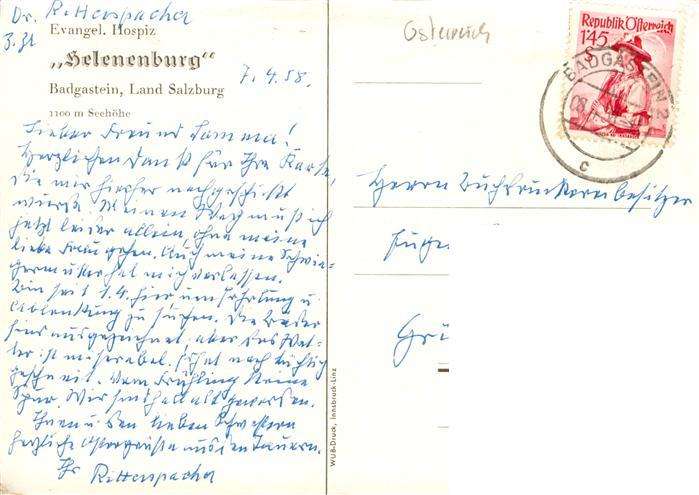 Dr. Rittenspacher
Z. 31
Evangel. Hospiz
„Helenenburg“
Badgastein, Land Salzburg
1100 m Seehöhe
7.4.58.
Lieber Freund !
Herzlichen Dank für Ihre Karte,
die mir hierher nachgeschickt
wurde. Meinen Weg muß ich
jetzt leider allein ohne meine
liebe Frau gehen. Auch meine Schwie-
germutter hat mich verlassen.
Bin seit 1.4. hier um Erholung u.
Ablenkung zu suchen. Die Bäder
sind ausgezeichnet, aber das Wet-
ter ist miserabel. Es hat noch tüchtig
geschneit. Vom Frühling keine
Spur. Wir sind halt alt geworden.
Ihnen u. den lieben Schwestern
herzliche Ostergrüße aus den Tauern.
Ihr Rittenspacher
WUB-Druck, Innsbruck-Linz
Österreich
Republik Österreich
1'45
BADGASTEIN 2
c
Herrn Buchdruckereibesitzer